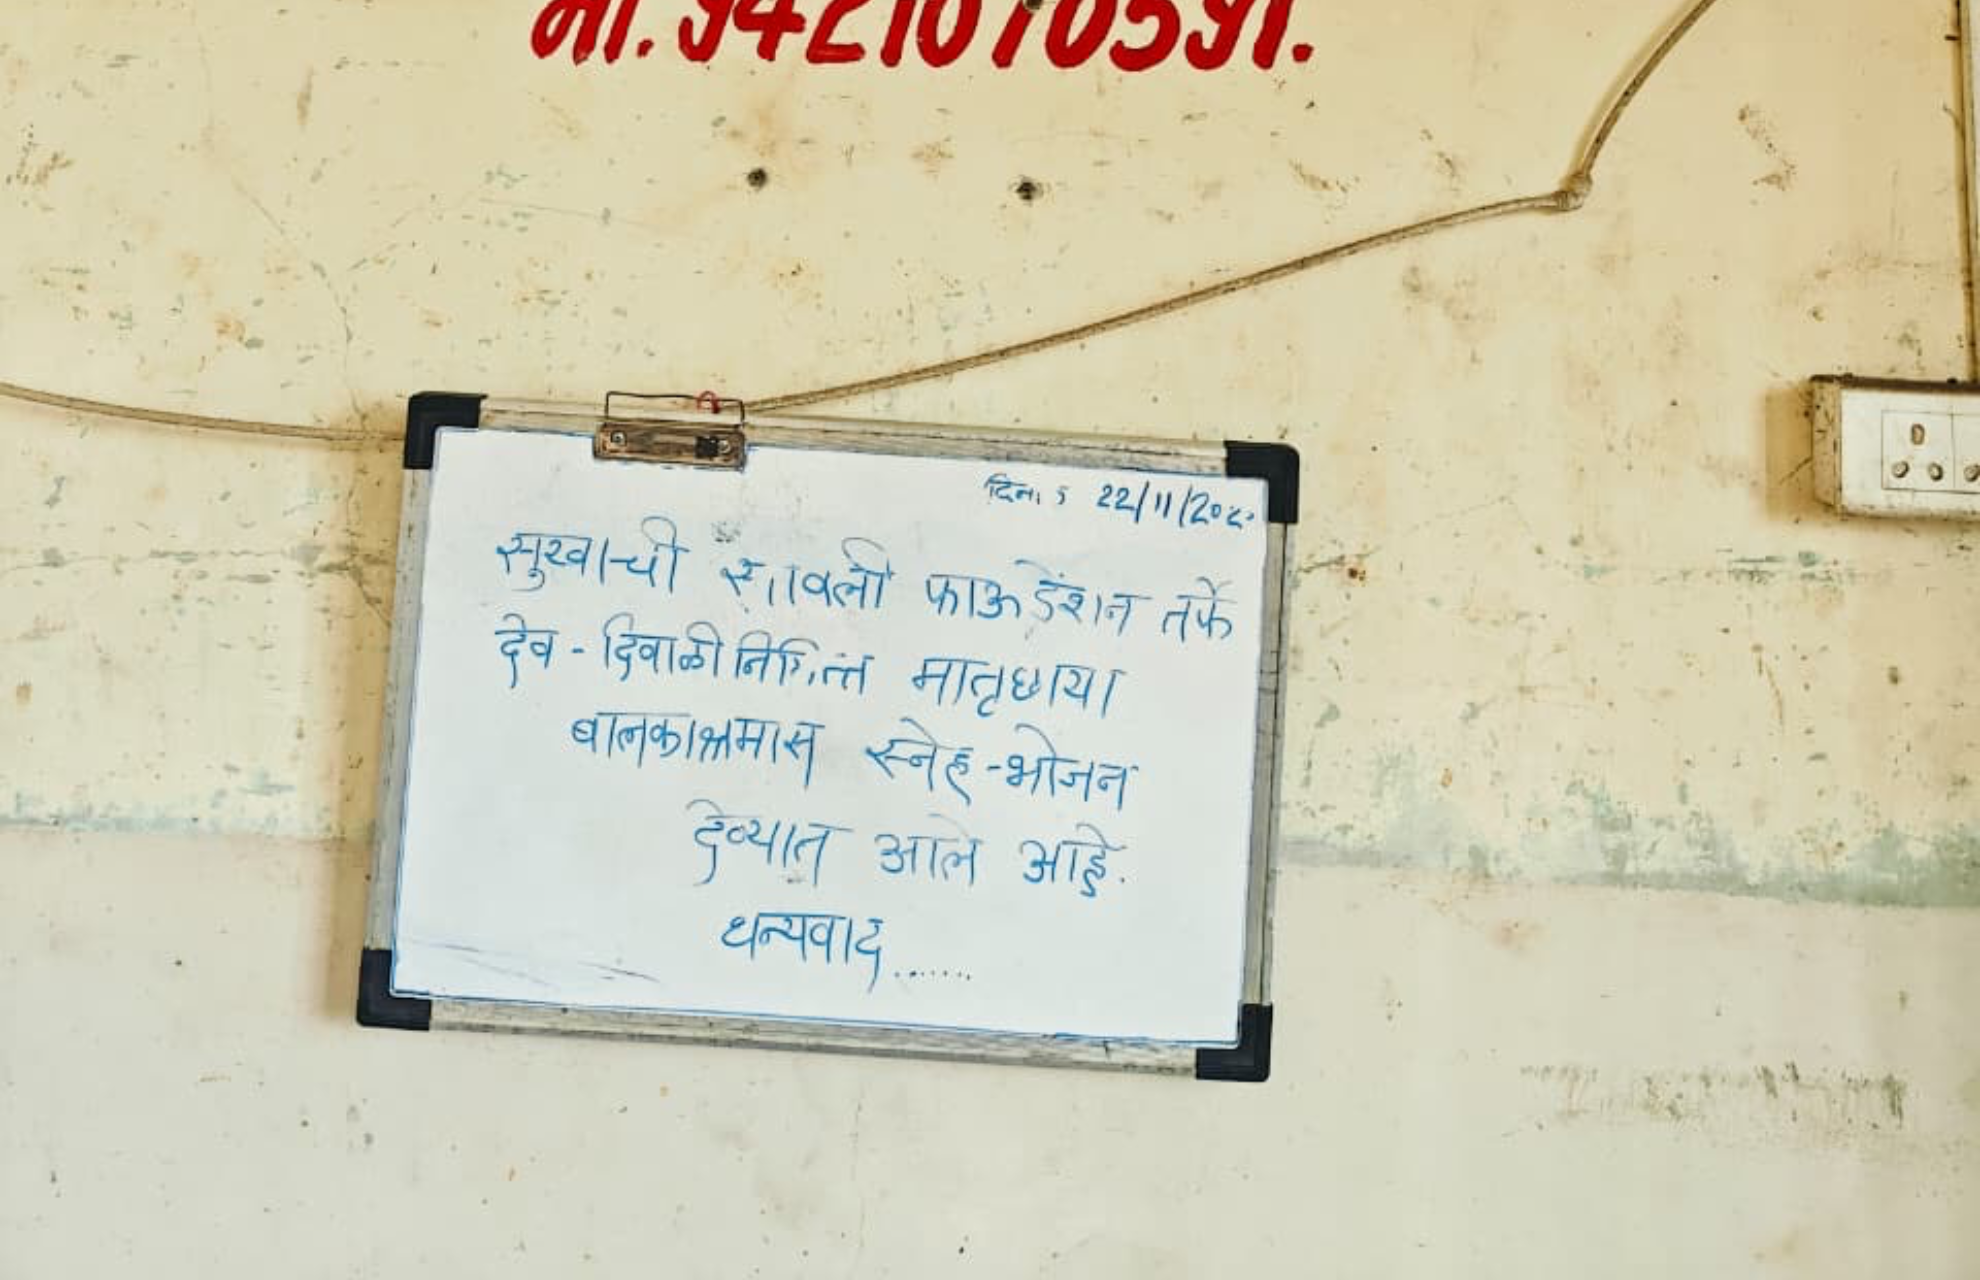 मो. 9421070591.
दिनांक 22/11/202
सुखाची सावली फाऊंडेशन तर्फे
देव - दिवाळी निमित्त मातृछाया
बालकाश्रमास स्नेह - भोजन
देण्यात आले आहे.
धन्यवाद.......